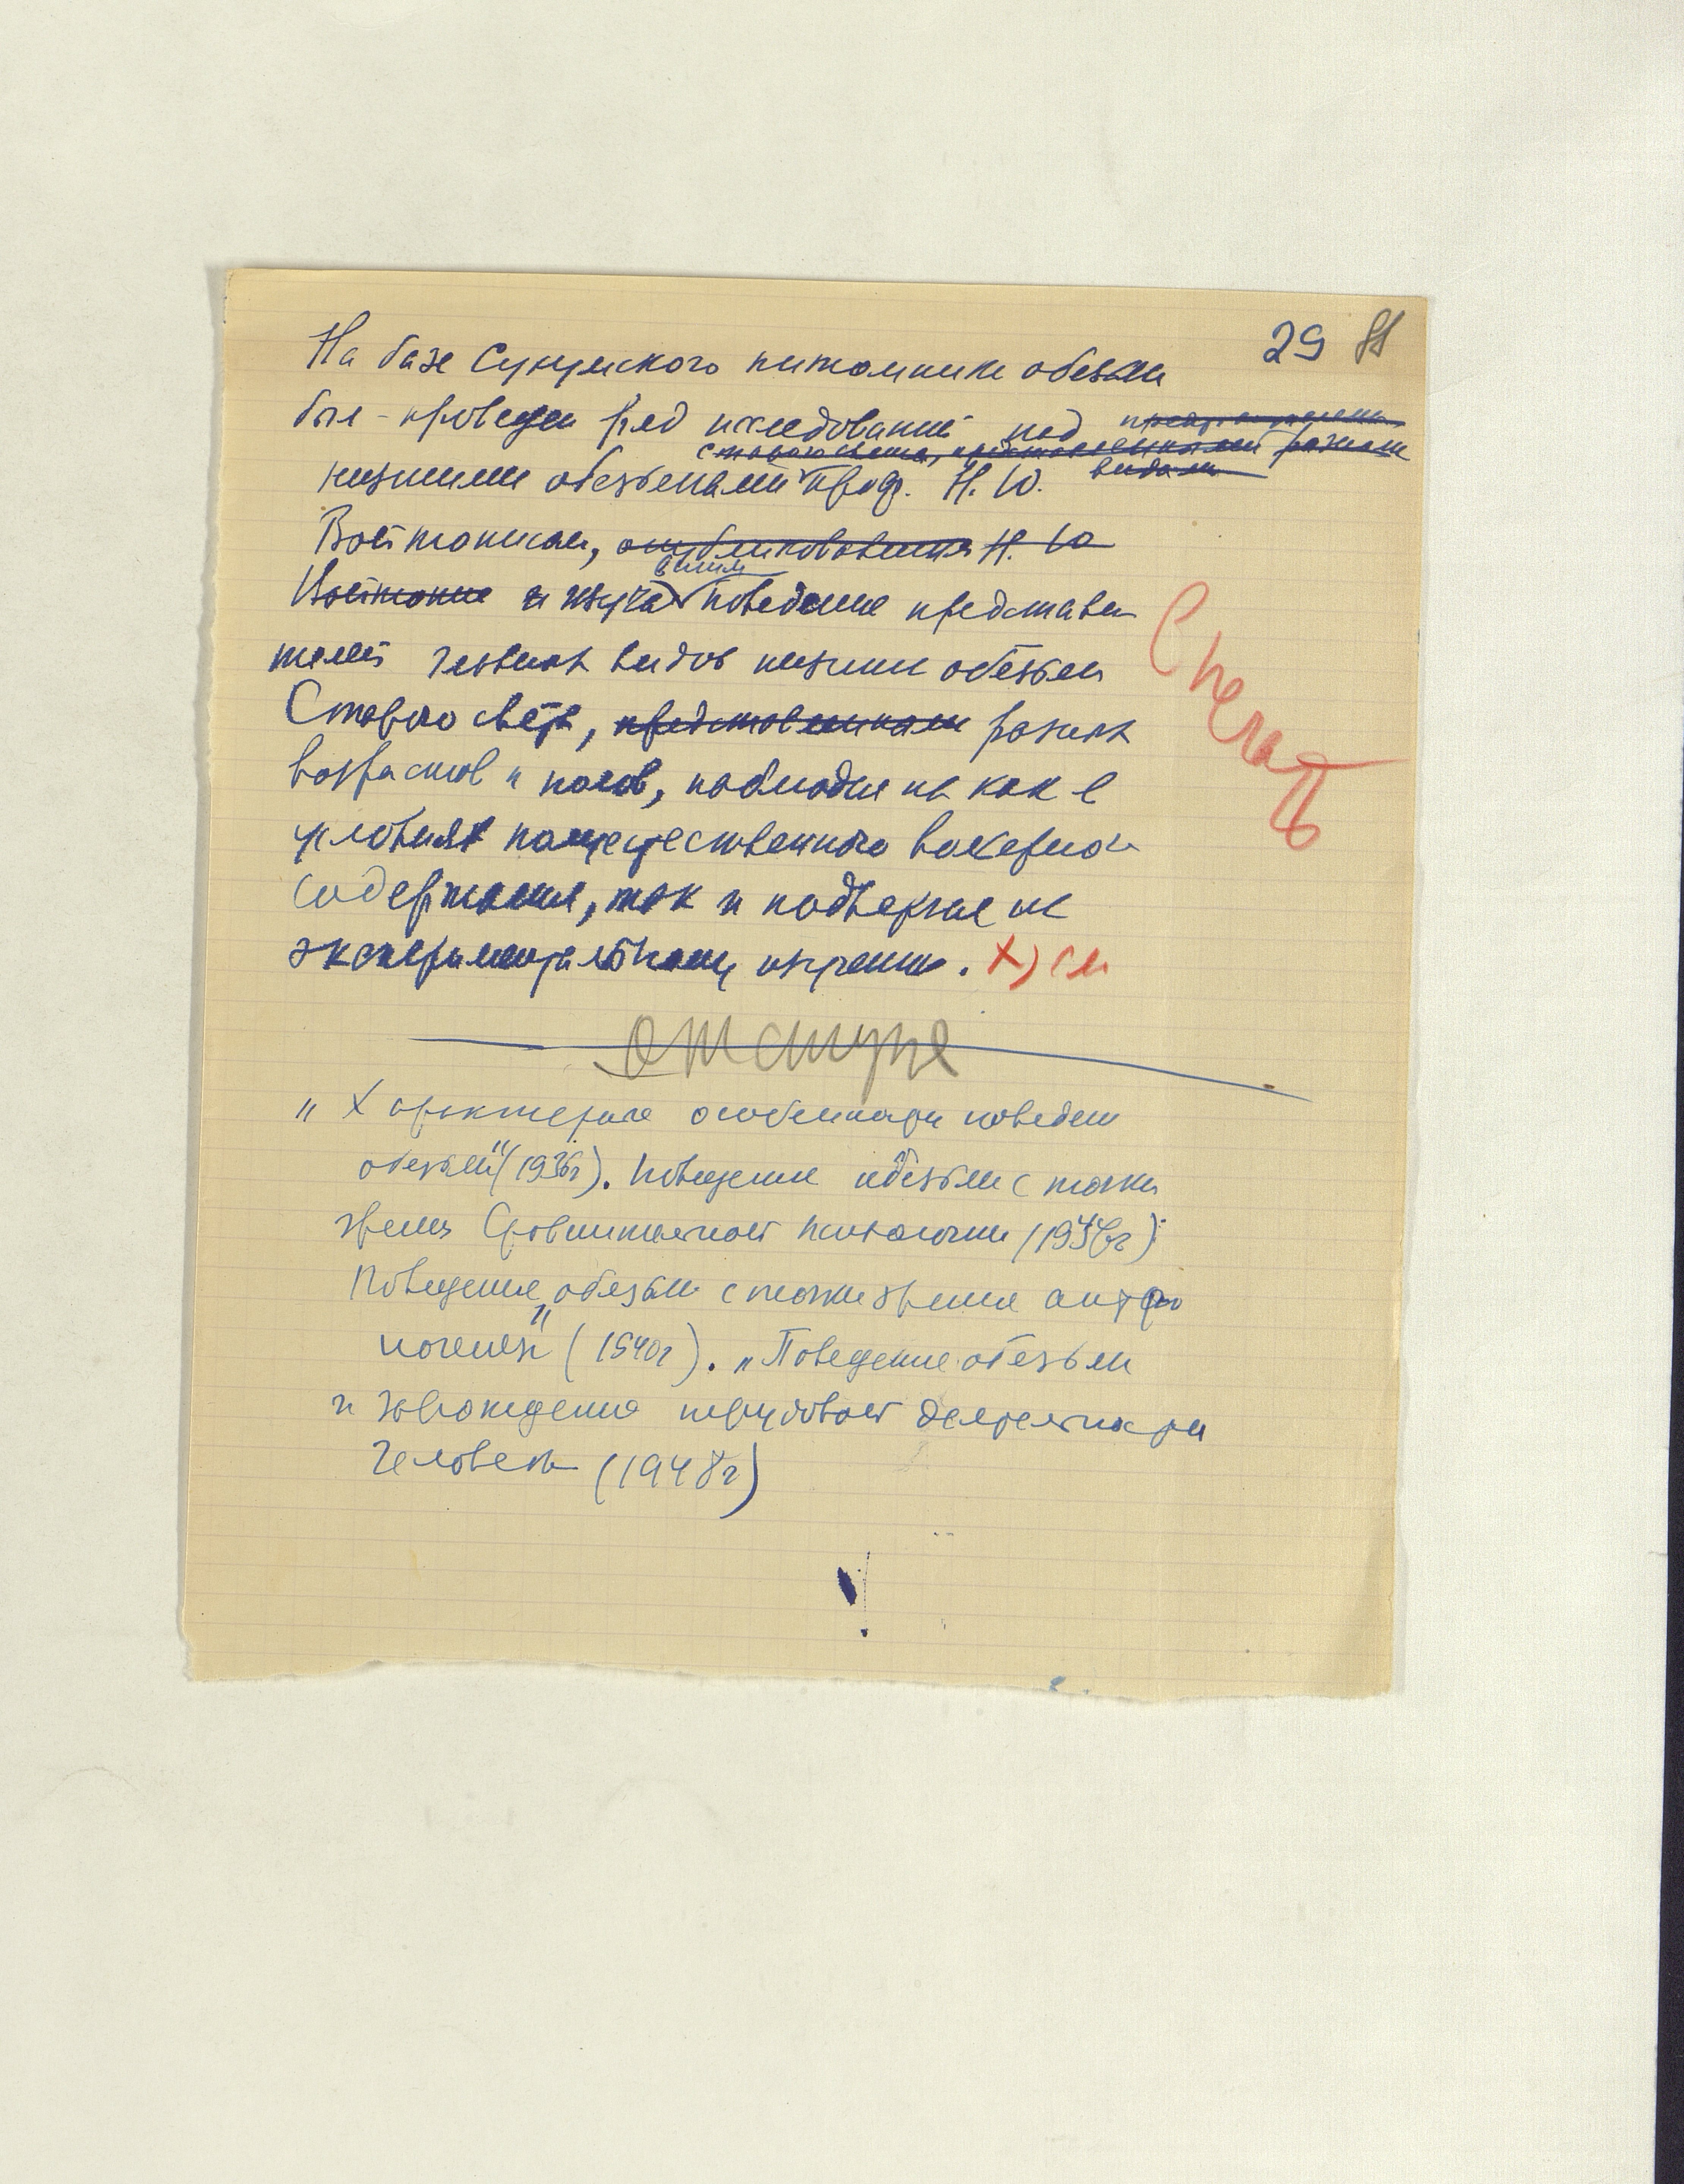 29
На базе Сухумского питомника обезьян
был проведен ряд исследований над
низшими обезьянами проф. Н. Ю.
Войтонисом, опубликованных Н. Ю
Войтонис и изучавшим поведение представи
телей разных видов низших обезьян
Старого света, представленных разных
возрастов и полов, наблюдая их как в
условиях вольерного
содержания, так и подвергая их
экспериментальному изучению. X) см
Спечать
отступя
„Характерные особенности поведения
обезьян" (1936г). Поведение обезьян с точки
зрения Сравнительной психологии (1946г):
Поведение обезьян с точки зрения антропо
погенеза" (1940г). „Поведение обезьян
и зарождение трудовой деятельности
человека (1948г)